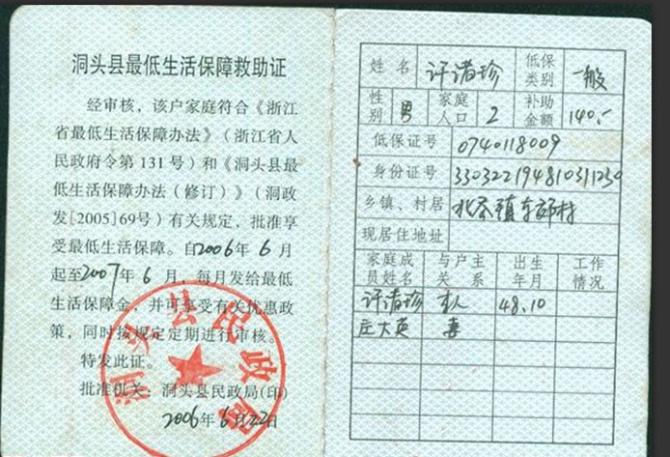 洞头县最低生活保障救助证
经审核，该户家庭符合《浙江
省最低生活保障办法》（浙江省人
民政府令第131号）和《洞头县最
低生活保障办法（修订）》（洞政
发[2005]69号）有关规定，批准享
受最低生活保障。自2006年6月
起至2007年6月，每月发给最低
生活保障金，并可享受有关优惠政
策，同时按规定定期进行审核。
特发此证。
批准机关：洞头县民政局(印)
2006年6月22日
洞头县民政局
姓名 许诸珍 低保类别 一般
性别 男 家庭人口 2 补助金额 140.-
低保证号 0740118009
身份证号
乡镇、村居 北岙镇东郊村
现居住地址
家庭成员姓名 与户主关系 出生年月 工作情况
许诸珍 本人 48.10
庄大英 妻